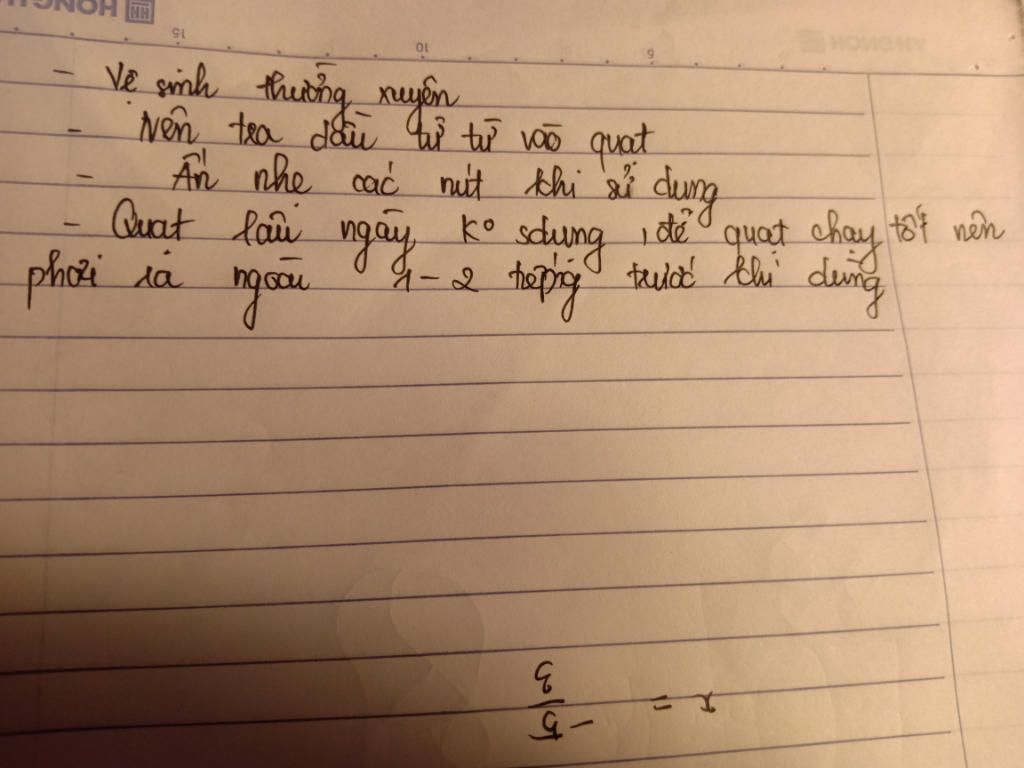 HONG HA
HH
15
10
5
HONG HA
- Vệ sinh thường xuyên
- Nên tra dầu từ từ vào quạt
- Ấn nhẹ các nút khi sử dụng
- Quạt lâu ngày k° sdụng, để quạt chạy tốt nên
phơi ra ngoài 1-2 tiếng trước khi dùng
x = -5/3